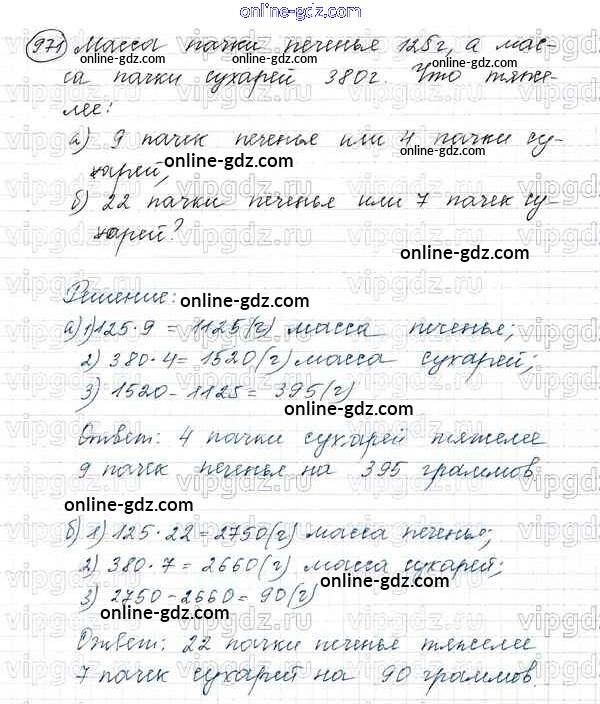 online-gdz.com
971 Масса пачки печенья 125г, а мас-
online-gdz.com
са пачки сухарей 380г. Что тяже-
лее:
а) 9 пачек печенья или 4 пачки су-
харей;
online-gdz.com
б) 22 пачки печенья или 7 пачек су-
харей?
online-gdz.com
Решение:
online-gdz.com
а) 1) 125·9 = 1125(г) масса печенья;
2) 380·4 = 1520(г) масса сухарей;
3) 1520 - 1125 = 395(г)
online-gdz.com
Ответ: 4 пачки сухарей тяжелее
9 пачек печенья на 395 граммов.
online-gdz.com
б) 1) 125·22 = 2750(г) масса печенья;
2) 380·7 = 2660(г) масса сухарей;
online-gdz.com
3) 2750 - 2660 = 90(г)
online-gdz.com
Ответ: 22 пачки печенья тяжелее
7 пачек сухарей на 90 граммов.
online-gdz.com